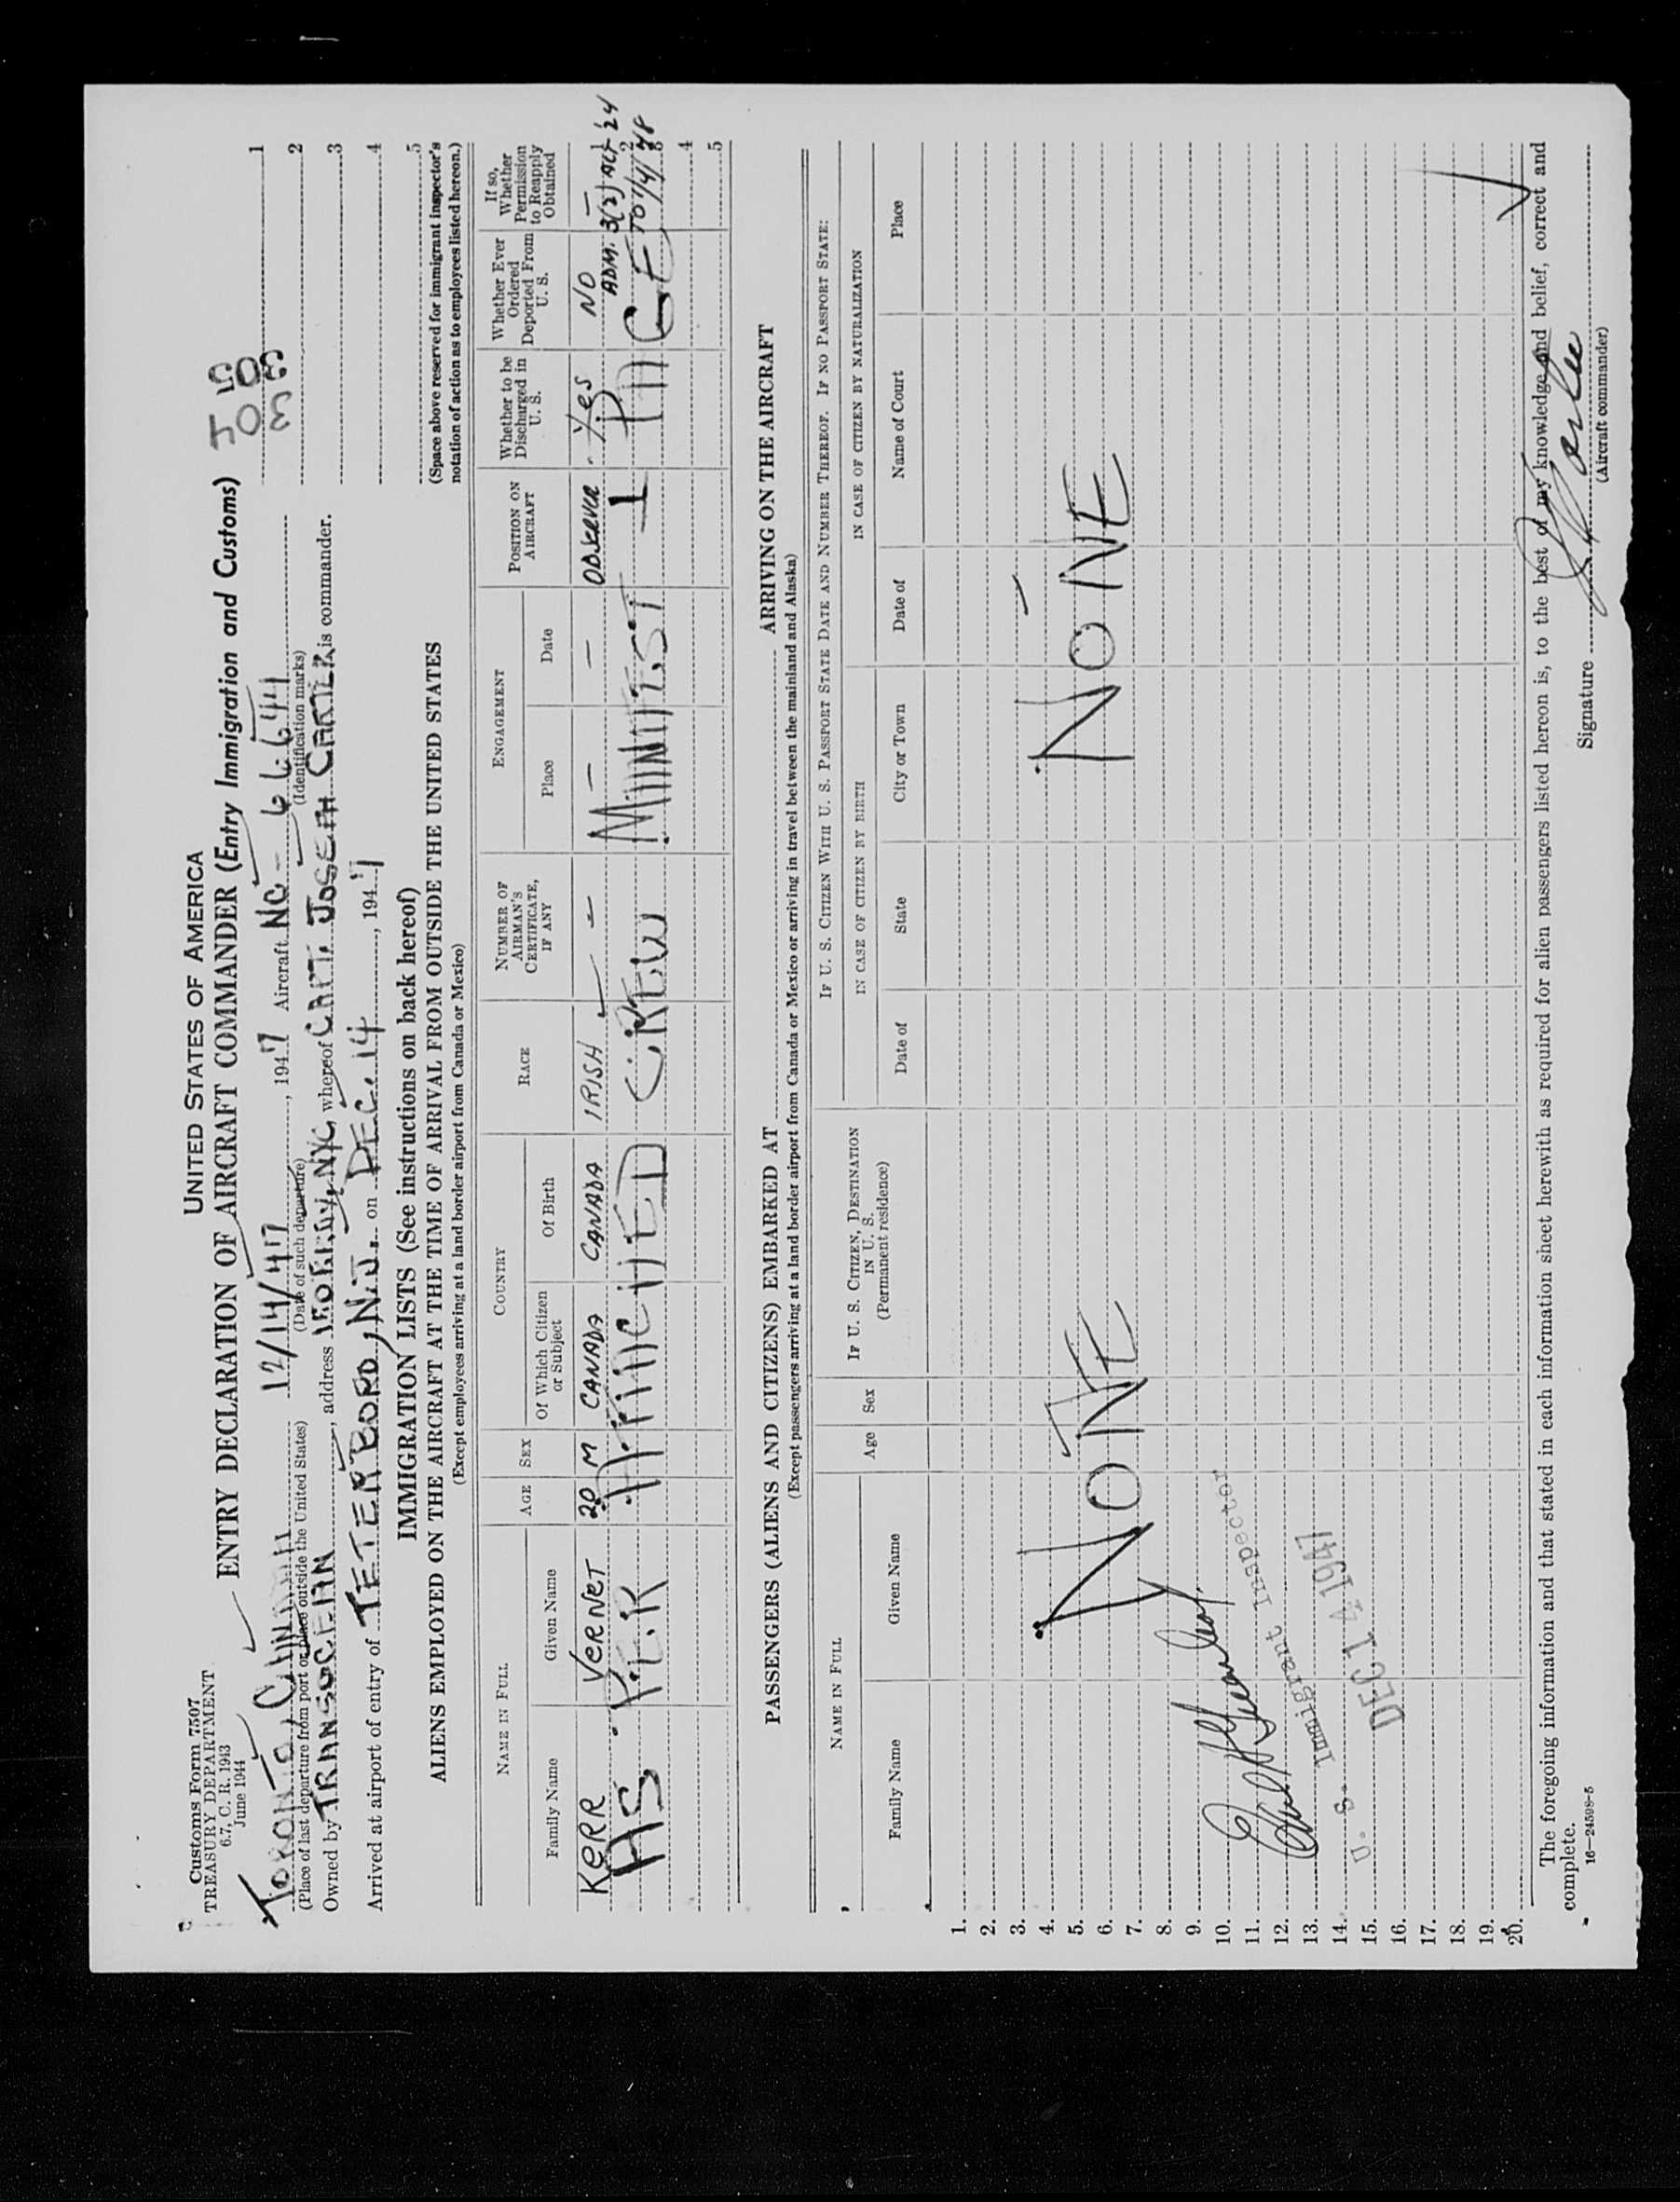 Customs Form 7507
TREASURY DEPARTMENT
6.7, C. R. 1943
June 1944
UNITED STATES OF AMERICA
ENTRY DECLARATION OF AIRCRAFT COMMANDER (Entry Immigration and Customs)
TORONTO, CANADA 12/14/47, 1947 Aircraft NC-66644
(Place of last departure from port or place outside the United States) (Date of such departure) (Identification marks)
Owned by TRANSOCEAN, address NYC, whereof CAPT. JOSEPH CARTER is commander.
Arrived at airport of entry of TETERBORO, N.J. on DEC. 14, 1947
1
2
3
4
5
(Space above reserved for immigrant inspector's
notation of action as to employees listed hereon.)
IMMIGRATION LISTS (See instructions on back hereof)
ALIENS EMPLOYED ON THE AIRCRAFT AT THE TIME OF ARRIVAL FROM OUTSIDE THE UNITED STATES
(Except employees arriving at a land border airport from Canada or Mexico)
NAME IN FULL
Family Name
Given Name
AGE
SEX
COUNTRY
Of Which Citizen or Subject
Of Birth
RACE
NUMBER OF AIRMAN'S CERTIFICATE, IF ANY
ENGAGEMENT
Place
Date
POSITION ON AIRCRAFT
Whether to be Discharged in U. S.
Whether Ever Ordered Deported From U. S.
If so, Whether Permission to Reapply Obtained
KERR VERNET 20 M CANADA CANADA IRISH - - - OBSERVER Yes NO - 1
ADM. 3(2) ACT '24
AS PER ATTACHED CREW MANIFEST 2
3
4
5
PASSENGERS (ALIENS AND CITIZENS) EMBARKED AT ARRIVING ON THE AIRCRAFT
(Except passengers arriving at a land border airport from Canada or Mexico or arriving in travel between the mainland and Alaska)
NAME IN FULL
Family Name
Given Name
Age
Sex
IF U. S. CITIZEN, DESTINATION IN U. S.
(Permanent residence)
IF U. S. CITIZEN WITH U. S. PASSPORT STATE DATE AND NUMBER THEREOF. IF NO PASSPORT STATE:
IN CASE OF CITIZEN BY BIRTH
Date of
State
City or Town
IN CASE OF CITIZEN BY NATURALIZATION
Date of
Name of Court
Place
1.
2.
3.
4.
5.
NONE NONE
6.
7.
8.
9.
10.
11.
12.
13.
14.
15.
16.
17.
18.
19.
20.
U. S. Immigrant Inspector
DEC 14 1947
The foregoing information and that stated in each information sheet herewith as required for alien passengers listed hereon is, to the best of my knowledge and belief, correct and
complete.
16—24598-5
Signature
(Aircraft commander)